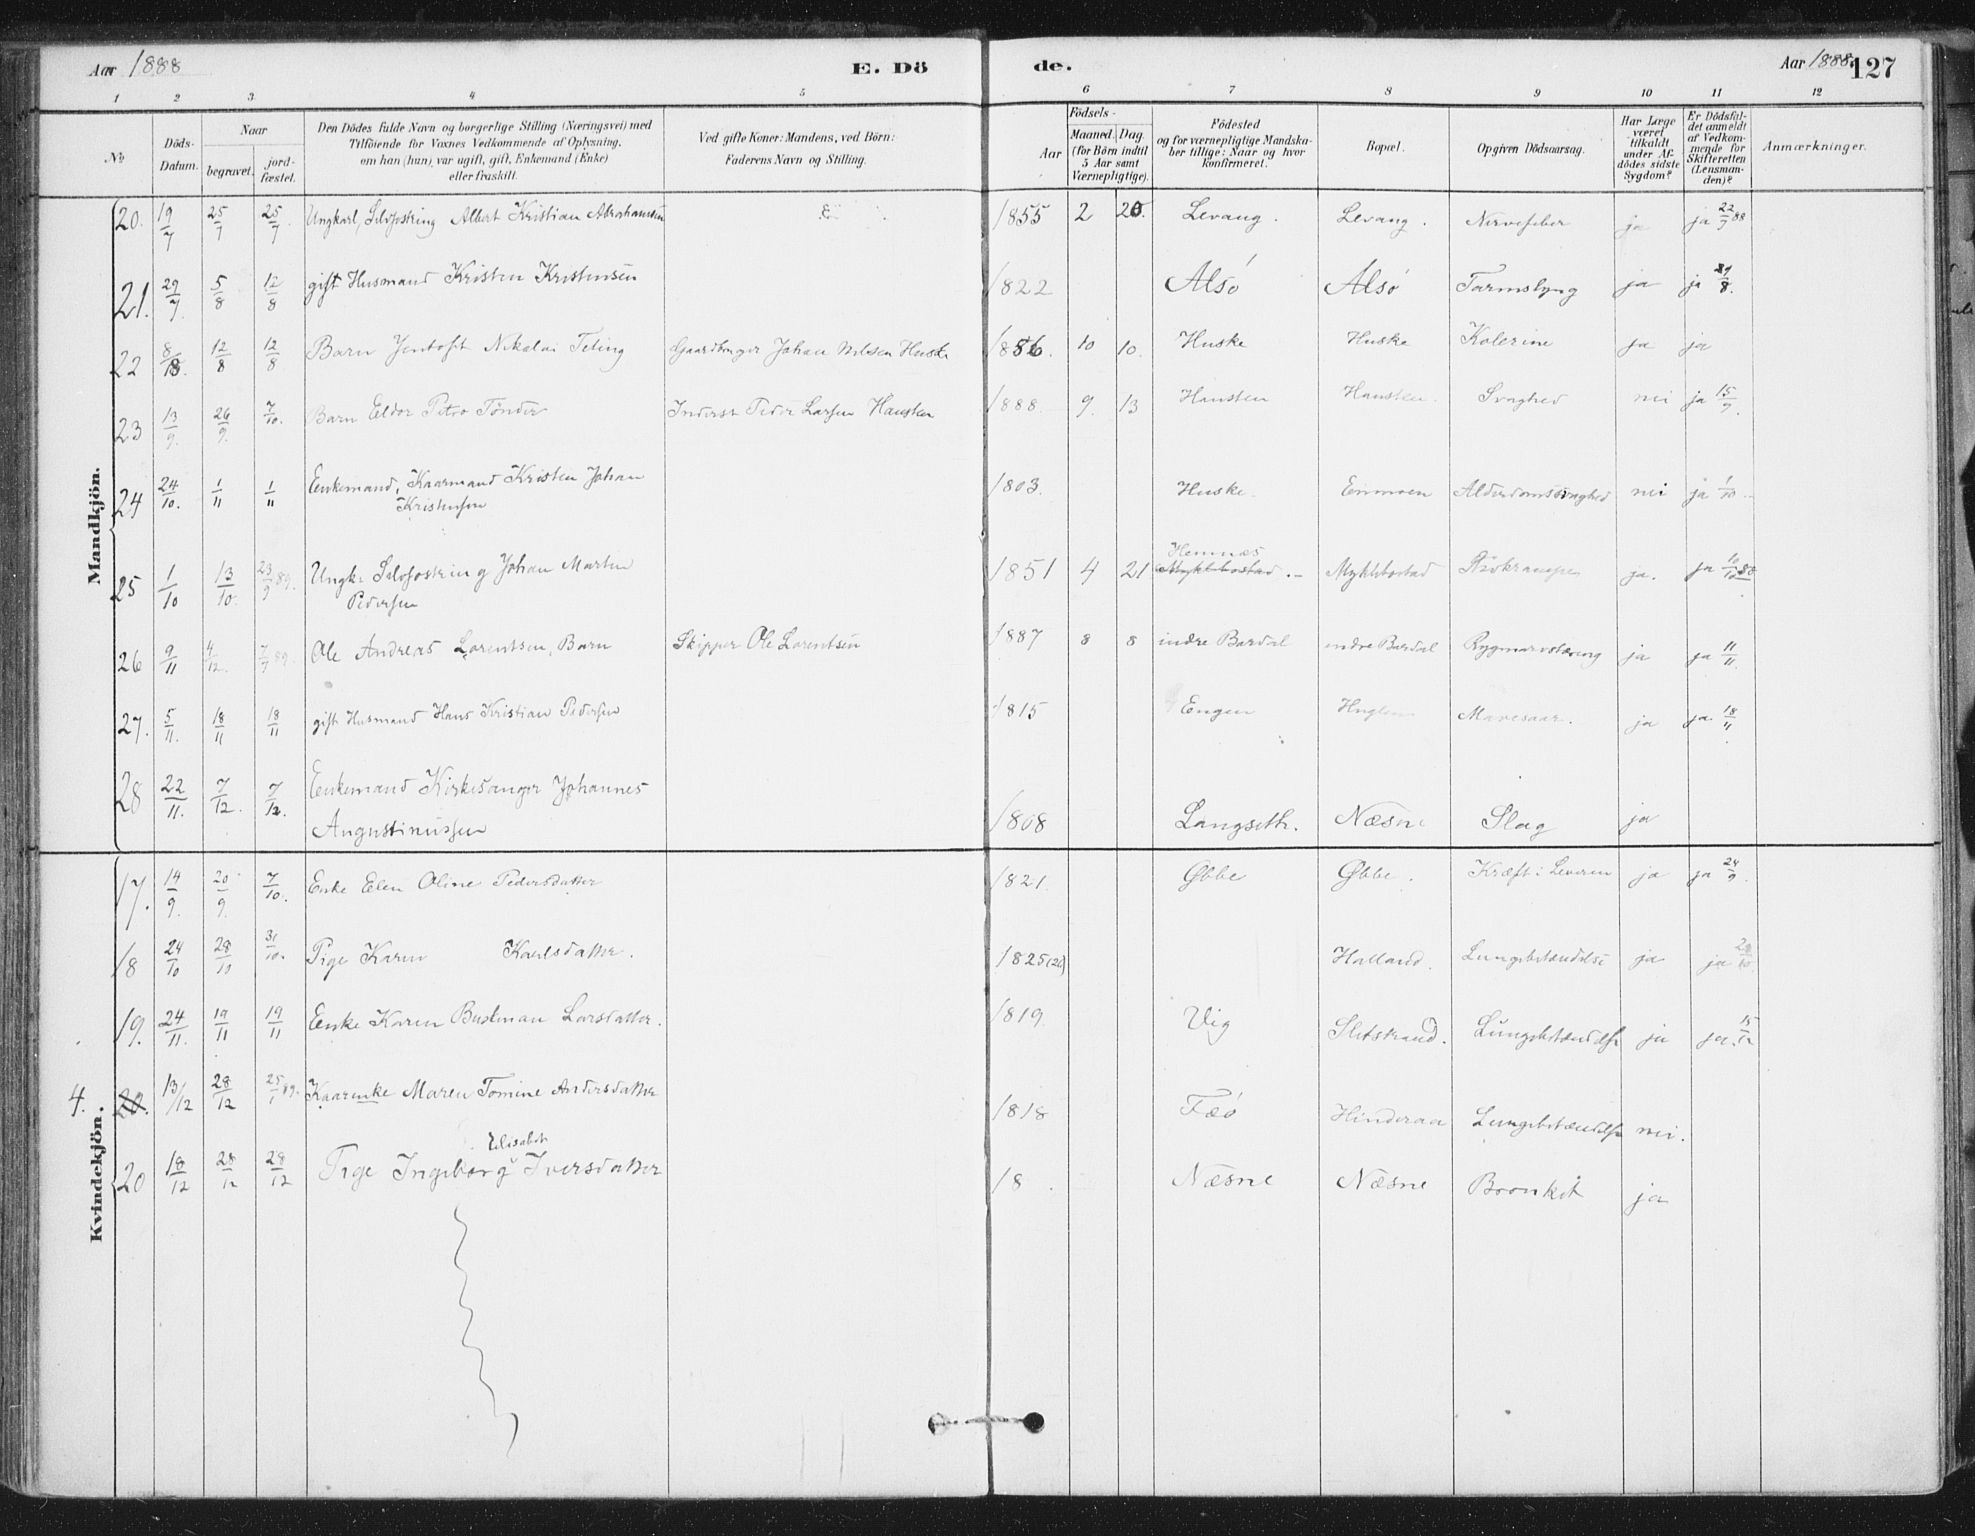 Aar 1888 E. Dö de. Aar 1888. 127
1 2 3 4 5 6 7 8 9 10 11 12
№
Döds-Datum.
Naar
begravet. jord-fæstet.
Den Dödes fulde Navn og borgerlige Stilling (Næringsvei) med
Tilföiende for Voxnes Vedkommende af Oplysning,
om han (hun) var ugift, gift, Enkemand (Enke)
eller fraskilt.
Ved gifte Koner: Mandens, ved Börn:
Faderens Navn og Stilling.
Födsels-
Aar Maaned. Dag.
(for Börn indtil
5 Aar samt
Værnepligtige).
Födested
og for værnepligtige Mandska-
ber tillige: Naar og hvor
konfirmeret.
Bopæl.
Opgiven Dödsaarsag.
Har Læge
været
tilkaldt
under Af-
dödes sidste
Sygdom?
Er Dödsfal-
det anmeldt
af Vedkom-
mende for
Skifteretten
(Lensman-
den)?
Anmærkninger.
Mandkjön.
20. 19/7 25/7 25/7. Ungkarl, Selvfostring Albert Kristian Abrahamsen 1855 2 20. Levang. Levang. Nervefeber ja ja 22/7 88
21. 29/7. 5/8 12/8 gift Husmand Kristen Kristensen 1822 Alsö Alsö Tarmslyng ja ja 29/8.
22 8/8. 12/8 12/8 Barn Jentoft Nikolai Teting Gaardbruger Johan Nilsen Huske 1886. 10 10. Huske Huske Kolerine ja ja
23 13/9. 26/9. 7/10. Barn Eldor Petro Tönder Inderst Peder Larsen Hausten 1888 9. 13 Hausten Hausten. Svaghed nei ja 15/9.
24 24/10. 1/11 1/11 Enkemand, Kaarmand Kristen Johan
Kristensen 1803. Huske. Einmoen Alderdomssvaghed nei ja 1/10
25 1/10 13/10. 23/9 89. Ungk. Selvfostring Johan Martin
Pedersen 1851 4 21 Hemnæs
Myklebostad. Myklebostad ja. ja
26 9/11 4/12. 7/7 89. Ole Andreas Lorentsen, Barn Skipper Ole Lorentsen 1887 8 8 indre Bardal indre Bardal Rygmarvstæring ja ja 11/11.
27. 5/11. 18/11 18/11 gift Husmand Hans Kristian Pedersen 1815 Engen Huglen Mavesaar. ja ja 18/11
28 22/11. 7/12. 7/12. Enkemand Kirkesanger Johannes
Augustinussen 1808 Langseth. Næsne Slag ja
Kvindekjön.
17. 14/9. 20/9. 7/10. Enke Elen Oline Pedersdatter 1821. Øbbe Øbbe. Kræft i Leveren ja ja 24/9.
18 24/10 28/10 31/10. Pige Karen Karlsdatter. 1825(26) Halland. Lungebetændelse ja ja
19. 24/11. 19/11 19/11 Enke Karen Bustman Larsdatter. 1819 Vig Sletstrand. Lungebetændelse ja ja. 15/12
4. 20. 13/12 28/12 25/1 89. Kaarenke Maren Tomine Andersdatter 1818 Fæö Hinderaa Lungebetændelse nei.
20 18/12 28/12 28/12 Pige Ingeborg Elisabet Iversdatter 18 . Næsne Næsne Bronkit ja